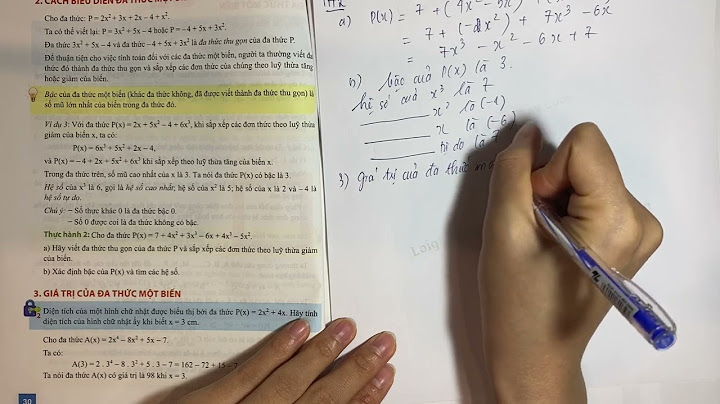 2. CÁCH BIỂU DIỄN ĐA THỨC MỘT
Cho đa thức: P = 2x² + 3x + 2x – 4 + x².
Ta có thể viết lại: P = 3x² + 5x – 4 hoặc P = – 4 + 5x + 3x².
Đa thức 3x² + 5x – 4 và đa thức – 4 + 5x + 3x² là đa thức thu gọn của đa thức P.
Để thuận tiện cho việc tính toán đối với các đa thức một biến, người ta thường viết đa
thức đó thành đa thức thu gọn và sắp xếp các đơn thức của chúng theo luỹ thừa tăng
hoặc giảm của biến.
Bậc của đa thức một biến (khác đa thức không, đã được viết thành đa thức thu gọn) là
số mũ lớn nhất của biến trong đa thức đó.
Ví dụ 3: Với đa thức P(x) = 2x + 5x² – 4 + 6x³, khi sắp xếp các đơn thức theo luỹ thừa
giảm của biến x, ta có:
P(x) = 6x³ + 5x² + 2x – 4,
và P(x) = – 4 + 2x + 5x² + 6x³ khi sắp xếp theo luỹ thừa tăng của biến x.
Trong đa thức trên, số mũ cao nhất của x là 3. Ta nói đa thức P(x) có bậc là 3.
Hệ số của x³ là 6, gọi là hệ số cao nhất; hệ số của x² là 5; hệ số của x là 2 và – 4 là
hệ số tự do.
Chú ý: – Số thực khác 0 là đa thức bậc 0.
– Số 0 được coi là đa thức không có bậc.
Thực hành 2: Cho đa thức P(x) = 7 + 4x² + 3x³ – 6x + 4x³ – 5x².
a) Hãy viết đa thức thu gọn của đa thức P và sắp xếp các đơn thức theo luỹ thừa giảm
của biến.
b) Xác định bậc của P(x) và tìm các hệ số.
3. GIÁ TRỊ CỦA ĐA THỨC MỘT BIẾN
2 Diện tích của một hình chữ nhật được biểu thị bởi đa thức P(x) = 2x² + 4x. Hãy tính
diện tích của hình chữ nhật ấy khi biết x = 3 cm.
Cho đa thức A(x) = 2x⁴ – 8x² + 5x – 7.
Ta có:
A(3) = 2 . 3⁴ – 8 . 3² + 5 . 3 – 7 = 162 – 72 + 15 – 7
Ta nói đa thức A(x) có giá trị là 98 khi x = 3.
30
a) P(x) = 7 + (4x² – 5x
= 7 + (-x²) + 7x³ – 6x
= 7x³ – x² – 6x + 7
b) bậc của P(x) là 3.
hệ số của x³ là 7
x² là (-1)
x là (-6)
tự do là 7
3) giá trị của đa thức